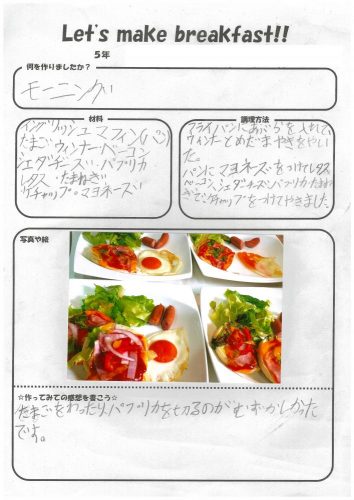 Let's make breakfast!!
5年
何を作りましたか？
モーニング
材料
イングリッシュマフィン(パン)
たまご ウィンナー ベーコン
シェダチーズ パプリカ
レタス たまねぎ
ケチャップ。マヨネーズ
調理方法
フライパンにあぶらを入れて、
ウィンナーとめだまやきをやい
た。
パンにマヨネーズをつけてレタス
ベーコン、シェダチーズパプリカたまね
ぎでケチャップをつけてやきました。
写真や絵
☆作ってみての感想を書こう☆
たまごをわったり、パプリカを切るのがむずかしかった
です。